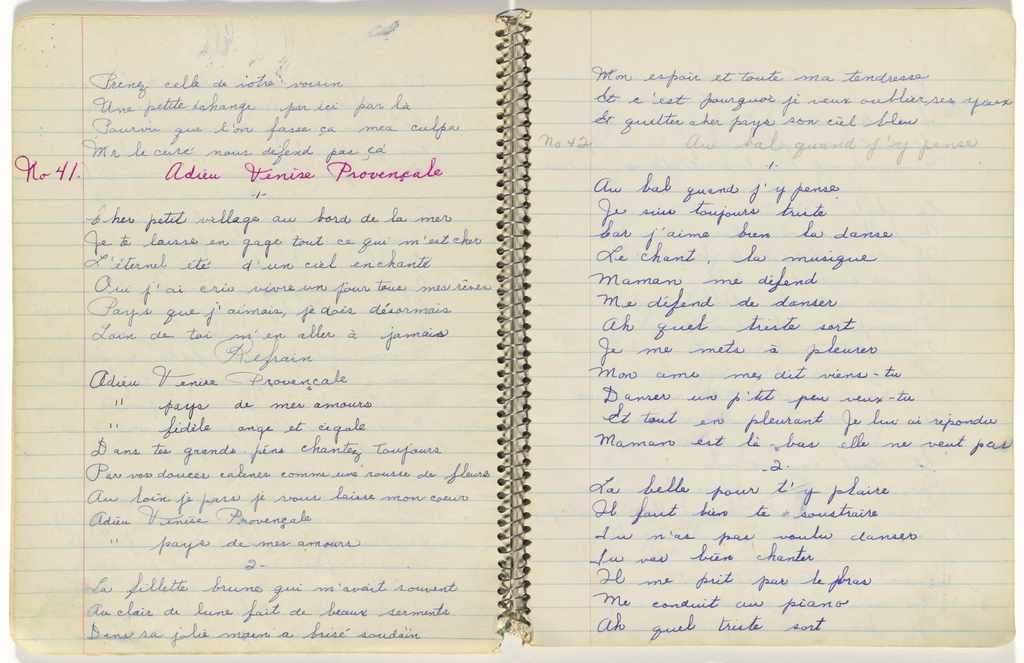 Prenez celle de votre voisin
Une petite échange par ici par la
Pourvu que l'on fasse ça mea culpa
Mr le curé nous défend pas ça
No 41. Adieu Venise Provençale
-1-
Cher petit village au bord de la mer
Je te laisse en gage tout ce qui m'est cher
L'éternel été d'un ciel enchanté
Oui j'ai cru vivre un jour tous mes rêves
Pays que j'aimais, je dois désormais
Loin de toi m'en aller à jamais
Refrain
Adieu Venise Provençale
" pays de mes amours
" fidèle ange et cigale
Dans tes grands pins chantez toujours
Par vos douces calines comme une rousée de fleurs
Au loin je pars je vous laisse mon coeur
Adieu Venise Provençale
" pays de mes amours
2-
La fillette brune qui m'avait souvent
Au clair de lune fait de beaux serments
Dans sa jolie main a brisé soudain
Mon espoir et toute ma tendresse
Et c'est pourquoi je veux oublier ses yeux
Et quitter cher pays son ciel bleu
No 42 Au bal quand j'y pense
-1-
Au bal quand j'y pense
Je suis toujours triste
Car j'aime bien la danse
Le chant, la musique
Maman me défend
Me défend de danser
Ah quel triste sort
Je me mets à pleurer
Mon ami me dit viens-tu
Danser un p'tit peu veux-tu
Et tout en pleurant Je lui ai répondu
Maman est là-bas elle ne veut pas
-2-
La belle pour t'y plaire
Il faut bien te soustraire
Tu n'as pas voulu danser
Tu vas bien chanter
Il me prit par le bras
Me conduit au piano
Ah quel triste sort